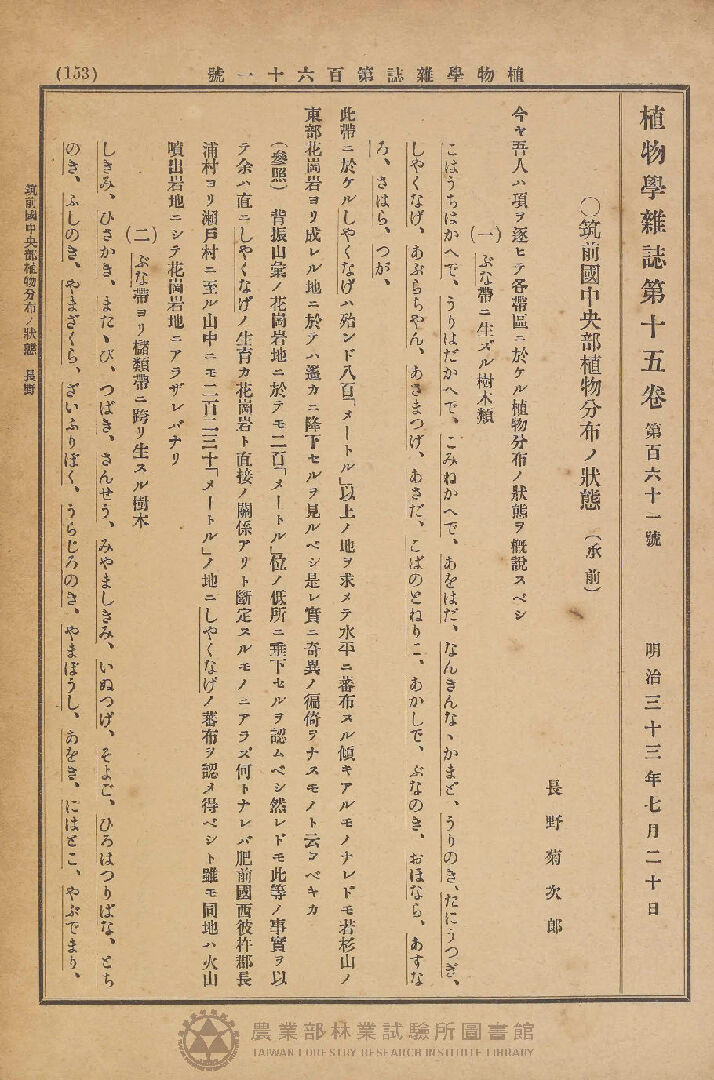 (153)
植物學雜誌第百六十一號
植物學雜誌第十五卷 第百六十一號 明治三十三年七月二十日
○筑前國中央部植物分布ノ狀態 (承前)
長野菊次郎
今ヤ吾人ハ項ヲ逐ヒテ各帶區ニ於ケル植物分布ノ狀態ヲ概說スベシ
(一) ぶな帶ニ生ズル樹木類
こはうちはかへで、うりはだかへで、こみねかへで、あをはだ、なんきんなゝかまど、うりのき、たにうつぎ、
しやくなげ、あぶらちやん、あさまつげ、あさだ、こばのとねりこ、あかしで、ぶなのき、おほなら、あすな
ろ、さはら、つが、
此帶ニ於ケルしやくなげハ殆ンド八百「メートル」以上ノ地ヲ求メテ水平ニ蕃布スル傾キアルモノナレドモ若杉山ノ
東部花崗岩ヨリ成レル地ニ於テハ遙カニ降下セルヲ見ルベシ是レ實ニ奇異ノ偏倚ヲナスモノト云フベキカ
(參照) 背振山彙ノ花崗岩地ニ於テモ二百「メートル」位ノ低所ニ垂下セルヲ認ムベシ然レドモ此等ノ事實ヲ以
テ余ハ直ニしやくなげノ生育カ花崗岩ト直接ノ關係アリト斷定スルモノニアラズ何トナレバ肥前國西彼杵郡長
浦村ヨリ瀨戶村ニ至ル山中ニモ二百二三十「メートル」ノ地ニしやくなげノ蕃布ヲ認メ得ベシト雖モ同地ハ火山
噴出岩地ニシテ花崗岩地ニアラザレバナリ
(二) ぶな帶ヨリ櫧類帶ニ跨リ生スル樹木
しきみ、ひさかき、またゝび、つばき、さんせう、みやましきみ、いぬつげ、そよご、ひろはつりばな、とち
のき、ふしのき、やまざくら、ざいふりぼく、うらじろのき、やまぼうし、あをき、にはとこ、やぶでまり、
筑前國中央部植物分布ノ狀態 長野
農業部林業試驗所圖書館
TAIWAN FORESTRY RESEARCH INSTITUTE LIBRARY